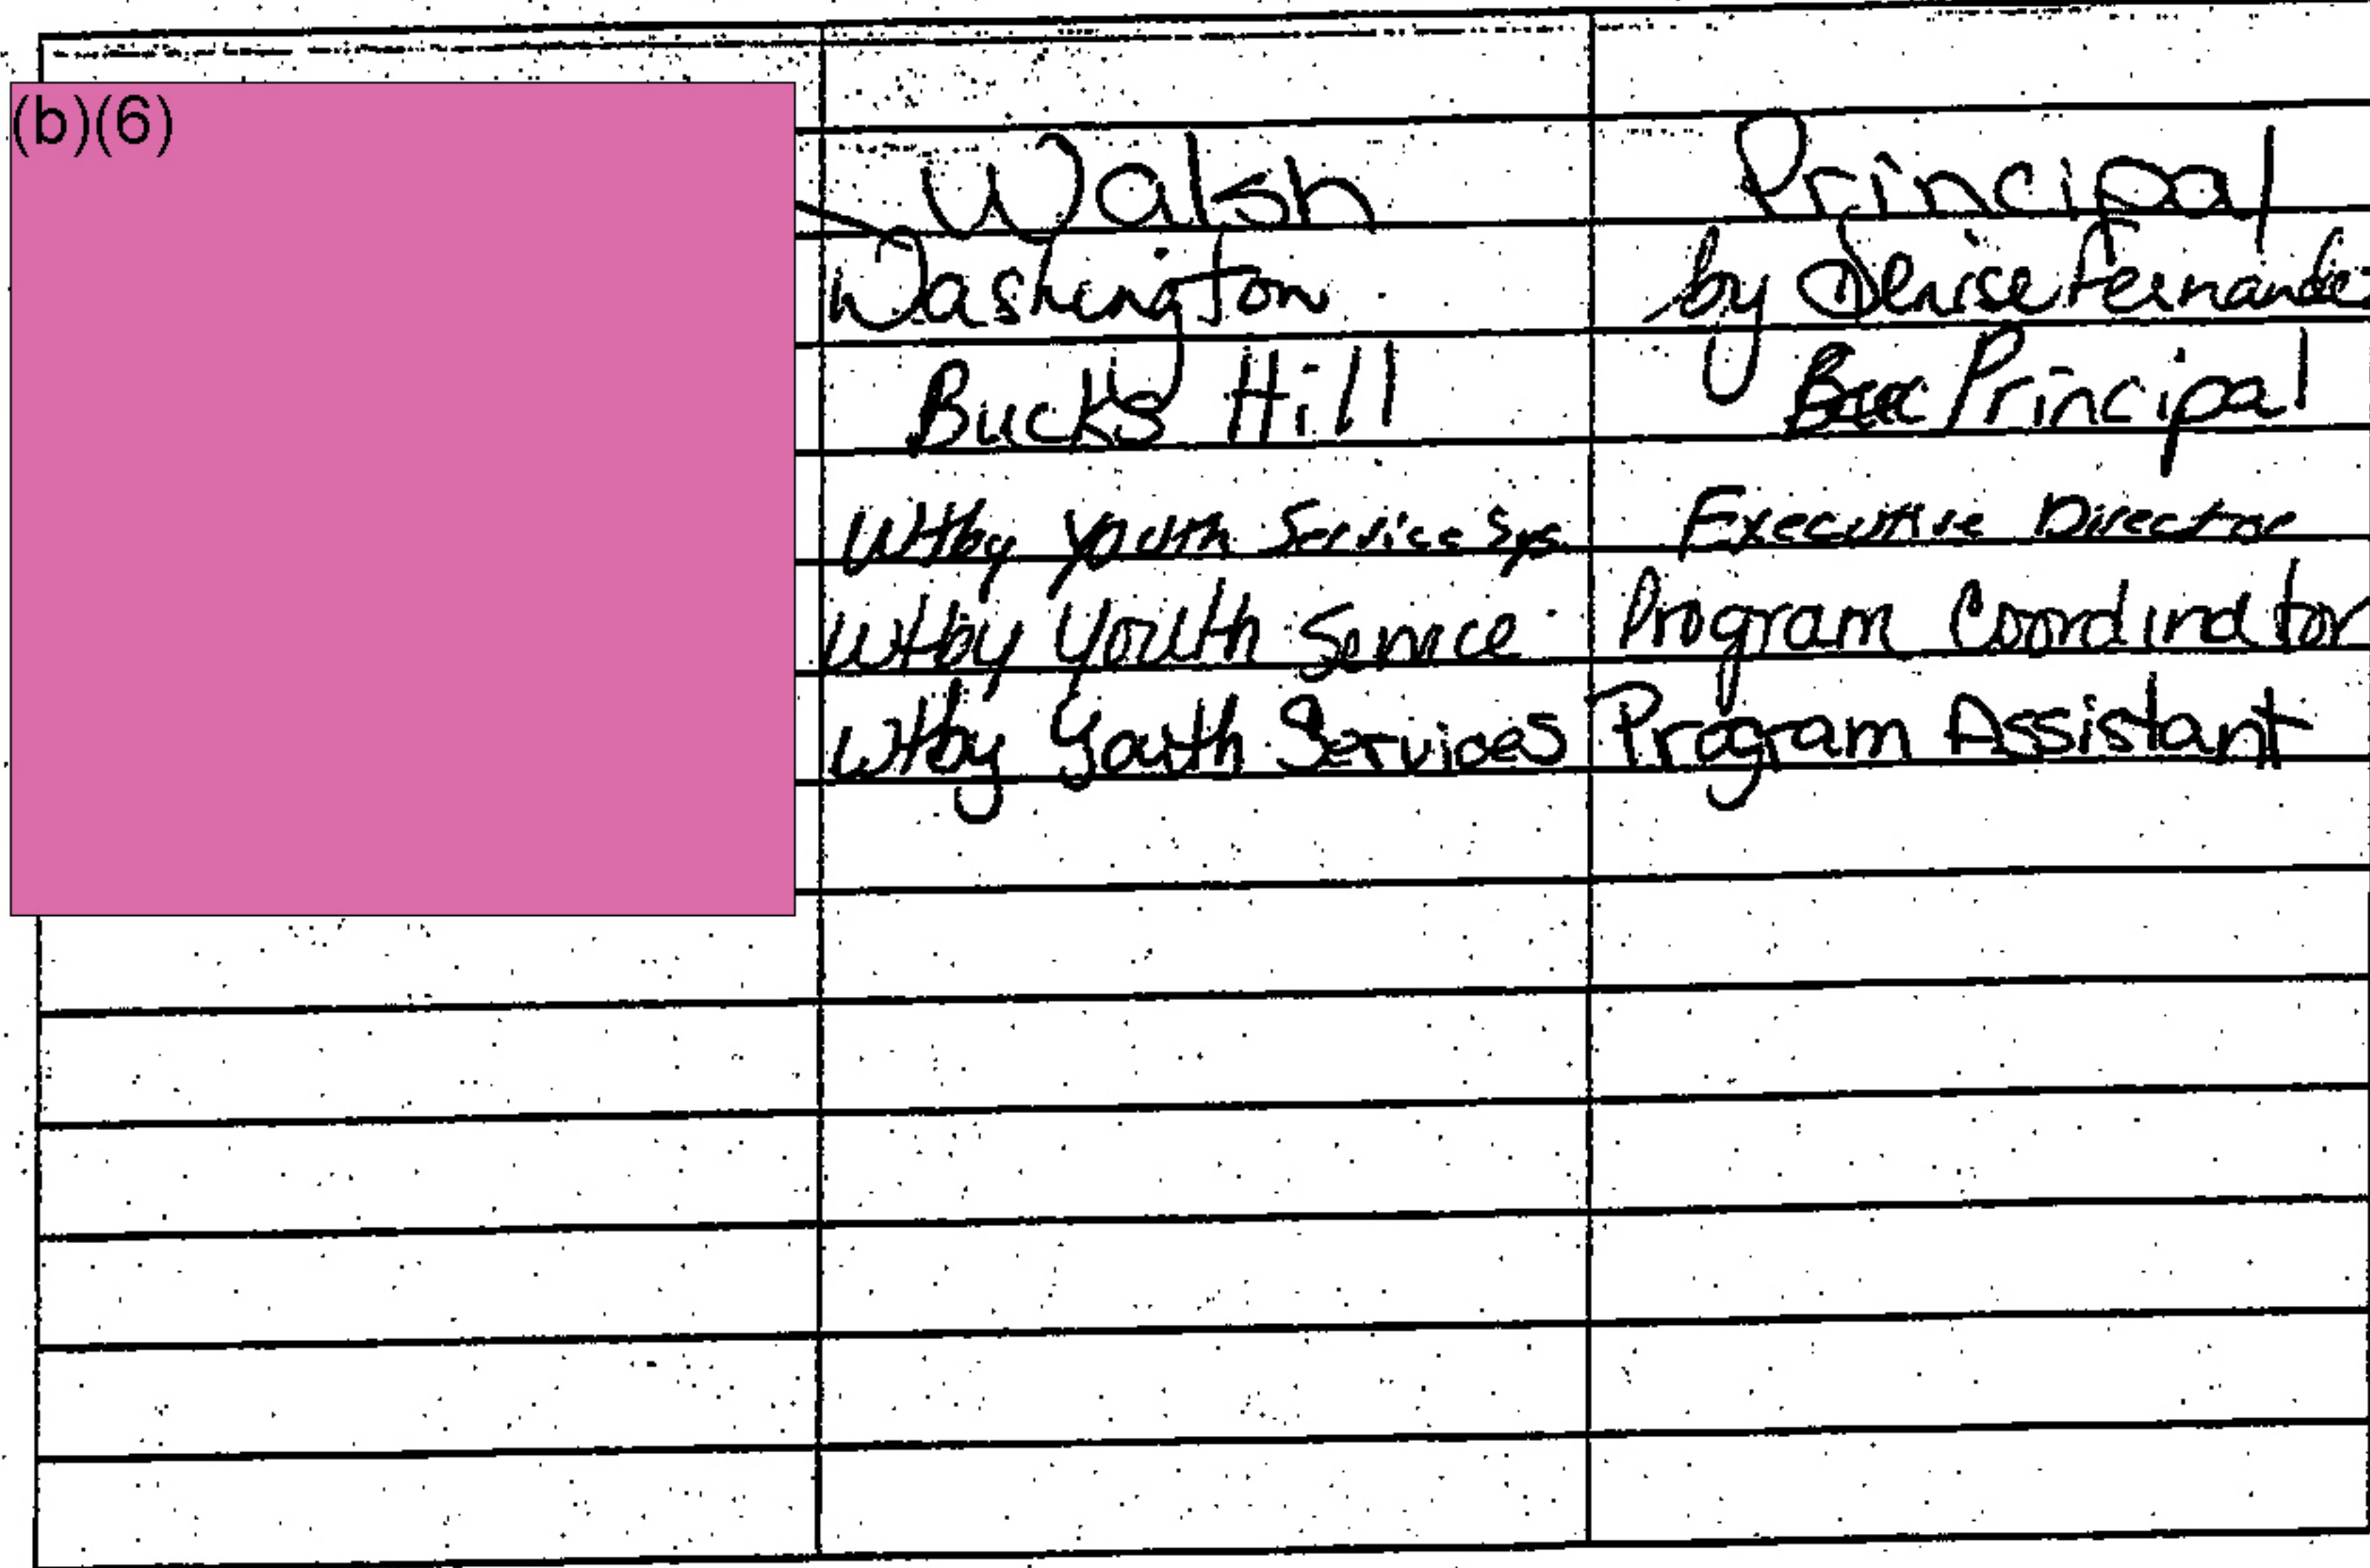 (b)(6)
Walsh Principal
Washington by Denise Fernande
Bucks Hill Principal
Wtby Youth Service Sys. Executive Director
Wtby Youth Service Program Coordinator
Wtby Youth Services Program Assistant